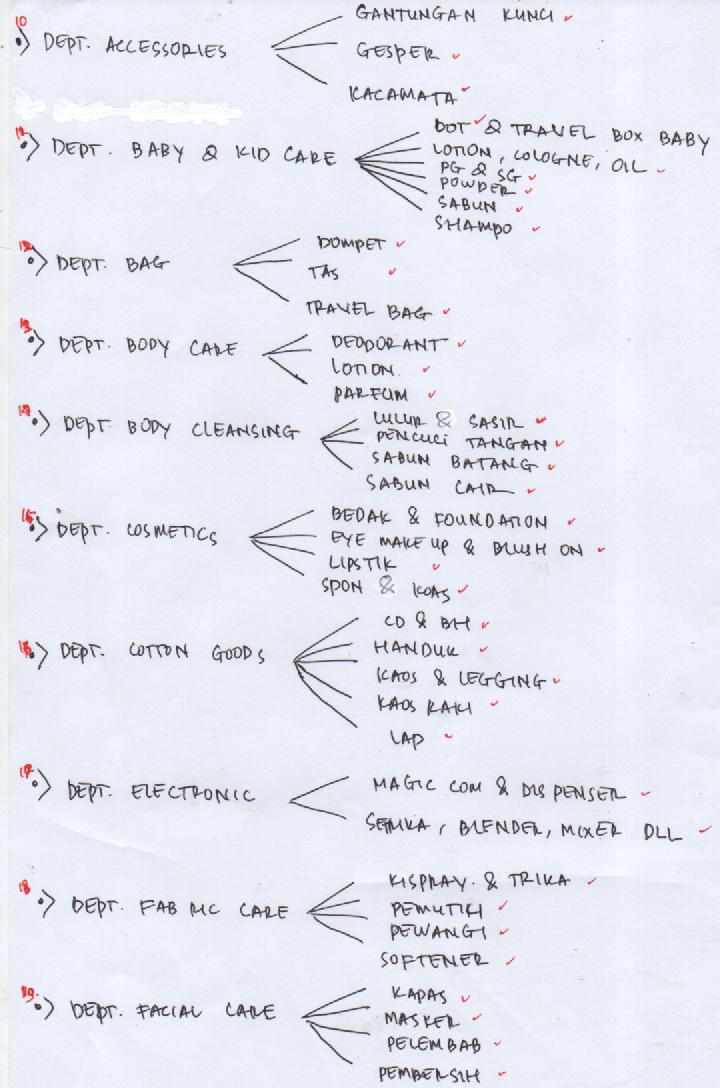 10
DEPT. ACCESSORIES
GANTUNGAN KUNCI
GESPER
KACAMATA
11
DEPT. BABY & KID CARE
DOT & TRAVEL BOX BABY
LOTION, COLOGNE, OIL
PG & SG
POWDER
SABUN
SHAMPO
12
DEPT. BAG
DOMPET
TAS
TRAVEL BAG
13
DEPT. BODY CARE
DEODORANT
LOTION
PARFUM
14
DEPT. BODY CLEANSING
LULUR & SASIR
PENCUCI TANGAN
SABUN BATANG
SABUN CAIR
15
DEPT. COSMETICS
BEDAK & FOUNDATION
EYE MAKE UP & BLUSH ON
LIPSTIK
SPON & KOAS
16
DEPT. COTTON GOODS
CD & BH
HANDUK
KAOS & LEGGING
KAOS KAKI
LAP
17
DEPT. ELECTRONIC
MAGIC COM & DISPENSER
SETRIKA, BLENDER, MIXER DLL
18
DEPT. FABRIC CARE
KISPRAY. & TRIKA
PEMUTIH
PEWANGI
SOFTENER
19.
DEPT. FACIAL CARE
KAPAS
MASKER
PELEMBAB
PEMBERSIH